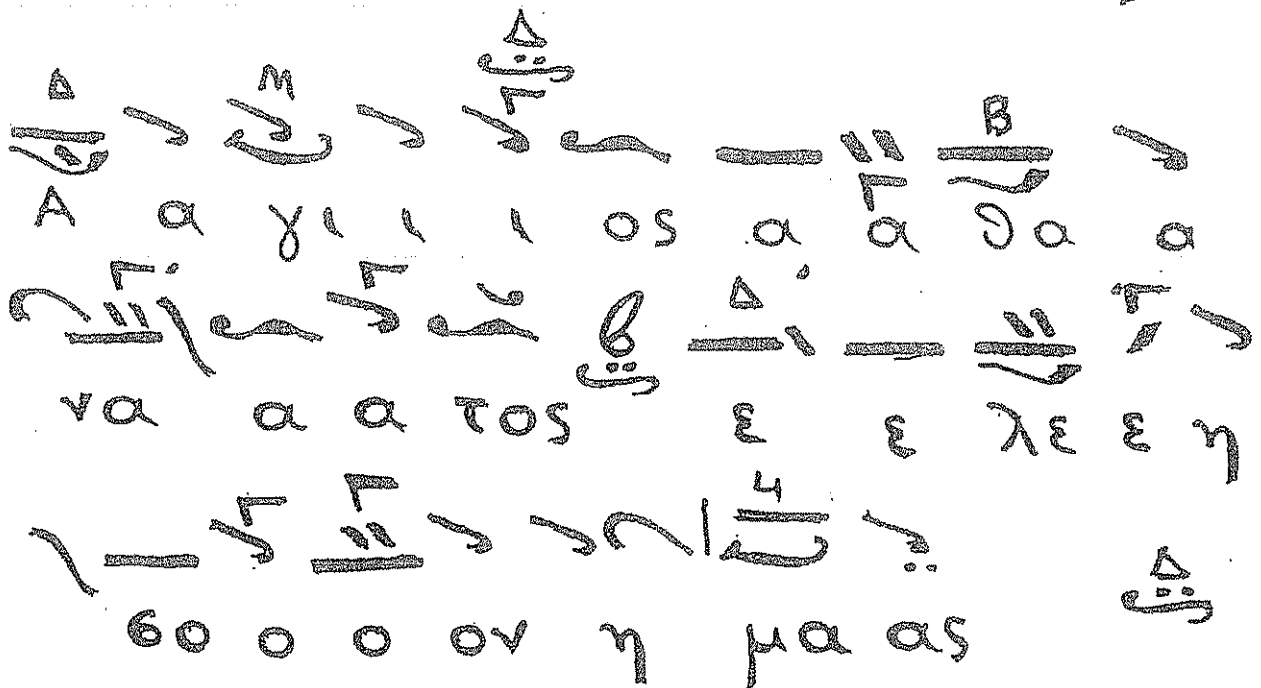 Α α γι ι ι ος α α θα α
να α α τος ε ε λε ε η
σο ο ο ον η μα ας